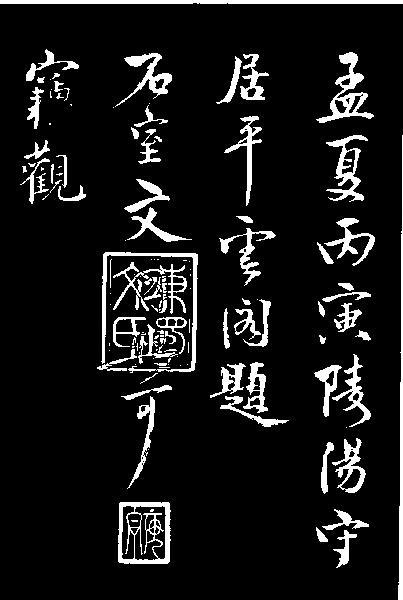 孟夏丙寅陵陽守
居平雲閣題
石室文可
竊觀
東蜀文氏